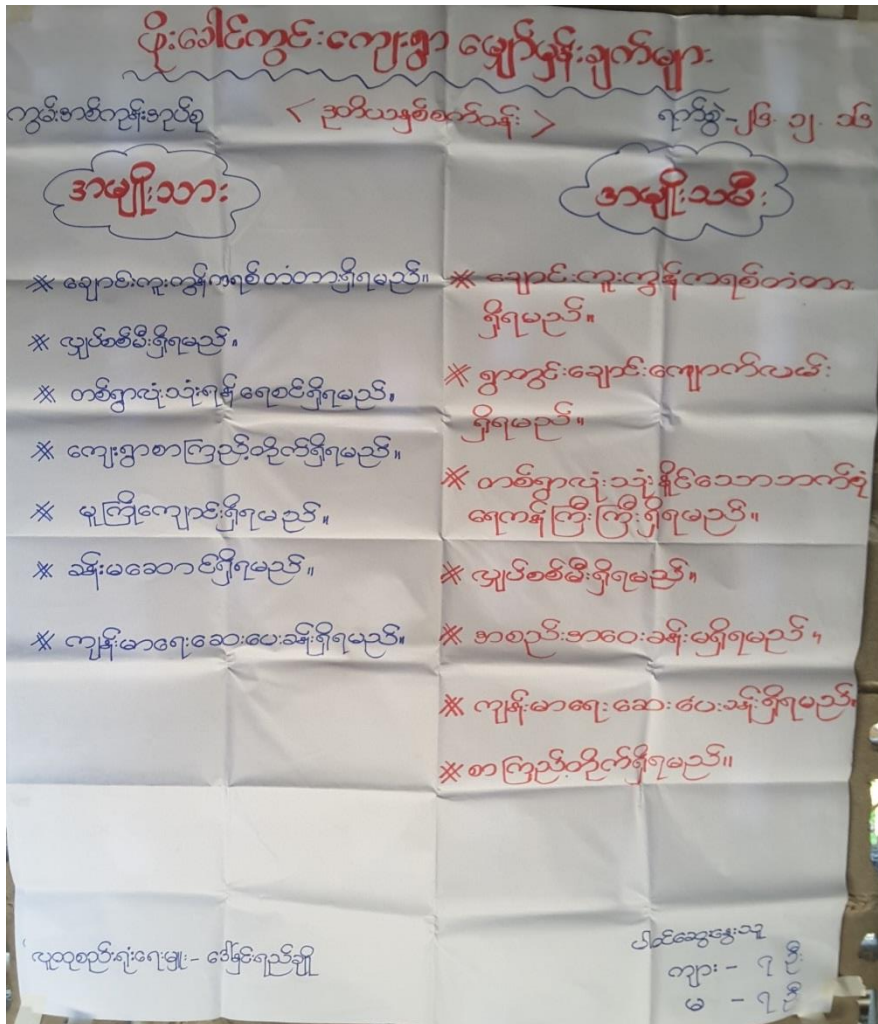 ပိုးခေါင်ကွင်းကျေးရွာ မျှော်မှန်းချက်များ
ကွမ်းတစ်ကုန်းအုပ်စု
< ဒုတိယနှစ်စက်ဝန်း >
ရက်စွဲ-၂၆. ၁၂. ၁၆
အမျိုးသား
※ ချောင်းကူးကွန်ကရစ်တံတားရှိရမည်။
※ လျှပ်စစ်မီးရှိရမည်။
※ တစ်ရွာလုံးသုံးရန် ရေစင်ရှိရမည်။
※ ကျေးရွာစာကြည့်တိုက်ရှိရမည်။
※ မူကြိုကျောင်းရှိရမည်။
※ ခန်းမဆောင်ရှိရမည်။
※ ကျန်းမာရေးဆေးပေးခန်းရှိရမည်။
အမျိုးသမီး
※ ချောင်းကူးကွန်ကရစ်တံတား
ရှိရမည်။
※ ရွာတွင်းချောင်းကျောက်လမ်း
ရှိရမည်။
※ တစ်ရွာလုံးသုံးနိုင်သော
ရေကန်ကြီးကြီးရှိရမည်။
※ လျှပ်စစ်မီးရှိရမည်။
※ အစည်းအဝေးခန်းမရှိရမည်။
※ ကျန်းမာရေးဆေးပေးခန်းရှိရမည်။
※ စာကြည့်တိုက်ရှိရမည်။
လူထုစည်းရုံးရေးမှူး - ဒေါ်ခြင်းရည်ချို
ပါဝင်ဆွေးနွေးသူ
ကျား - ၇ ဦး
မ - ၇ ဦး